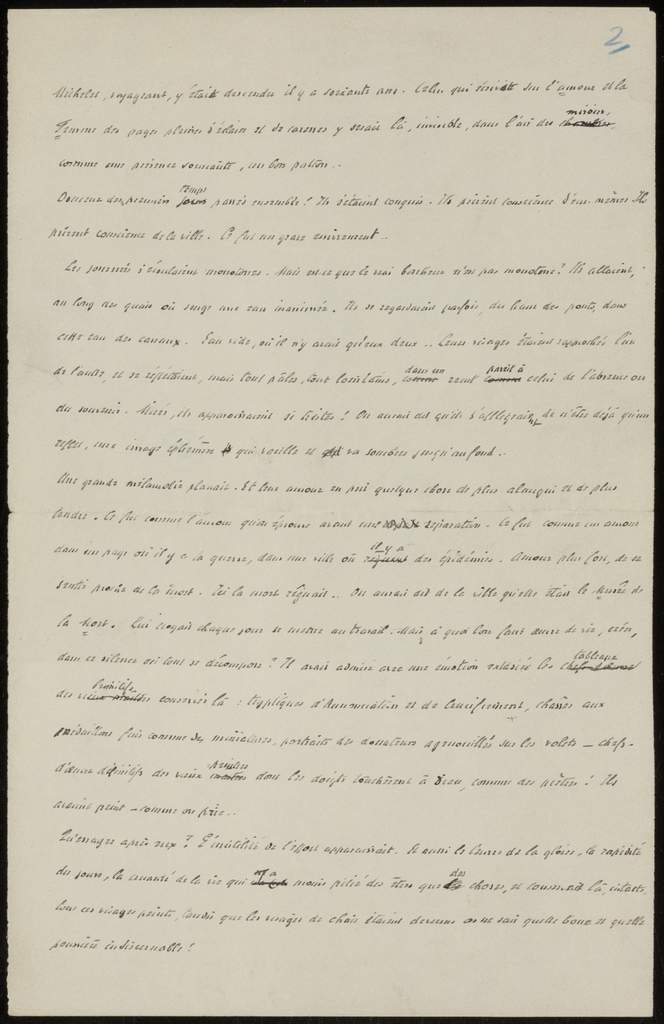 2
Michelet, voyageant, y était descendu il y a soixante ans. Celui qui écrivit sur l'amour et la
Femme des pages pleines d'éclairs et de caresses y serait là, invisible, dans l'air des miroirs,
comme une présence souriante, un bon patron..
Douceur des premiers temps passés ensemble! Ils s'étaient conquis. Ils prirent conscience d'eux-mêmes. Ils
prirent conscience de la ville. Ce fut un grave enivrement..
Les journées s'écoulaient monotones. Mais est-ce que le vrai bonheur n'est pas monotone? Ils allaient,
au long des quais où songe une eau inanimée. Ils se regardaient parfois, du haut des ponts, dans
cette eau des canaux. Eau vide, où il n'y avait qu'eux deux.. Leurs visages étaient rapprochés l'un
de l'autre, et se répétaient, mais tout pâles, tout lointains, dans un recul pareil à celui de l'absence ou
du souvenir. Mirés, ils apparaissaient si tristes! On aurait dit qu'ils s'affligeaient de n'être déjà qu'un
reflet, une image éphémère qui vacille et va sombrer jusqu'au fond..
Une grande mélancolie planait. Et leur amour en prit quelque chose de plus alangui et de plus
tendre. Ce fut comme l'amour qu'on éprouve avant une séparation. Ce fut comme un amour
dans un pays où il y a la guerre, dans une ville où il y a des épidémies. Amour plus fort, de se
sentir proche de la mort. Ici la mort régnait.. On aurait dit de la ville qu'elle était le Musée de
la Mort. Lui essayait chaque jour se mettre au travail. Mais à quoi bon faire œuvre de vie, créer,
dans ce silence où tout se décompose? Il avait admiré avec une émotion les tableaux
des primitifs conservés là: triptyques d'Annonciation et de Crucifiement, châsses aux
peinture fins comme des miniatures, portraits des donateurs agenouillés sur les volets — chefs-
d'œuvre définitifs des vieux peintres dont les doigts touchèrent à Dieu, comme des prêtres! Ils
avaient peint — comme on prie..
Qu'essayer après eux? L'inutilité de l'effort apparaissait. Et aussi le leurre de la gloire, la rapidité
des jours, la cruauté de la vie qui a moins pitié des êtres que des choses, et conservait là, intacts,
tous ces visages peints, tandis que les visages de chair étaient devenus on ne sait quelle boue et quelle
poussière indiscernable!